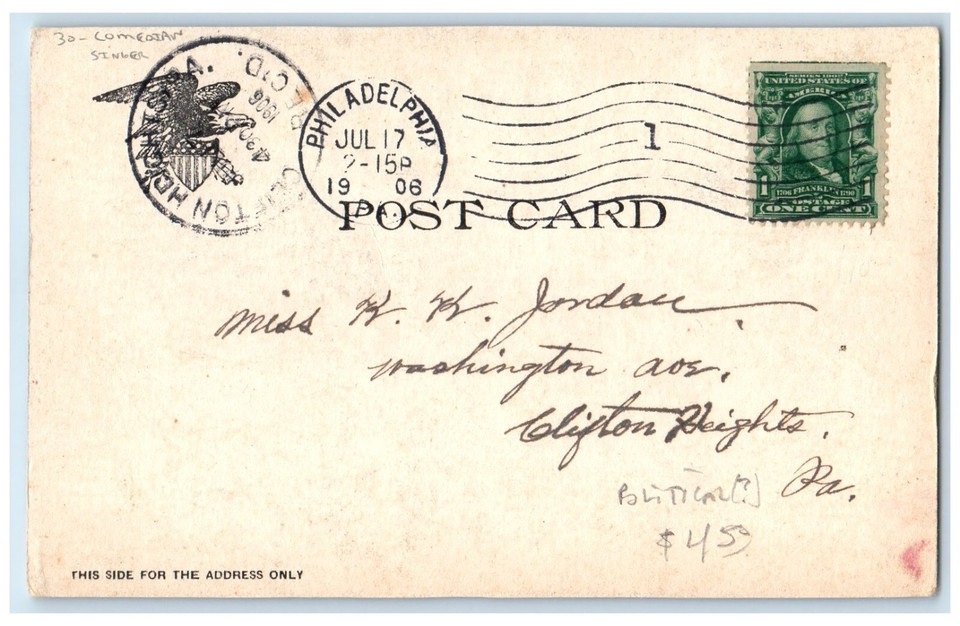 30 - COMEDIAN
SINGER
CLIFTON HEIGHTS PA.
REC'D.
1906
PHILADELPHIA
JUL 17
2-15P
19 06
PA.
1
SERIES 1902
UNITED STATES OF
AMERICA
1 1706 FRANKLIN 1790 1
POSTAGE
ONE CENT
POST CARD
Miss K. K. Jordan.
Washington Ave.
Clifton Heights.
Pa.
POLITICAL [?]
$4 50
THIS SIDE FOR THE ADDRESS ONLY